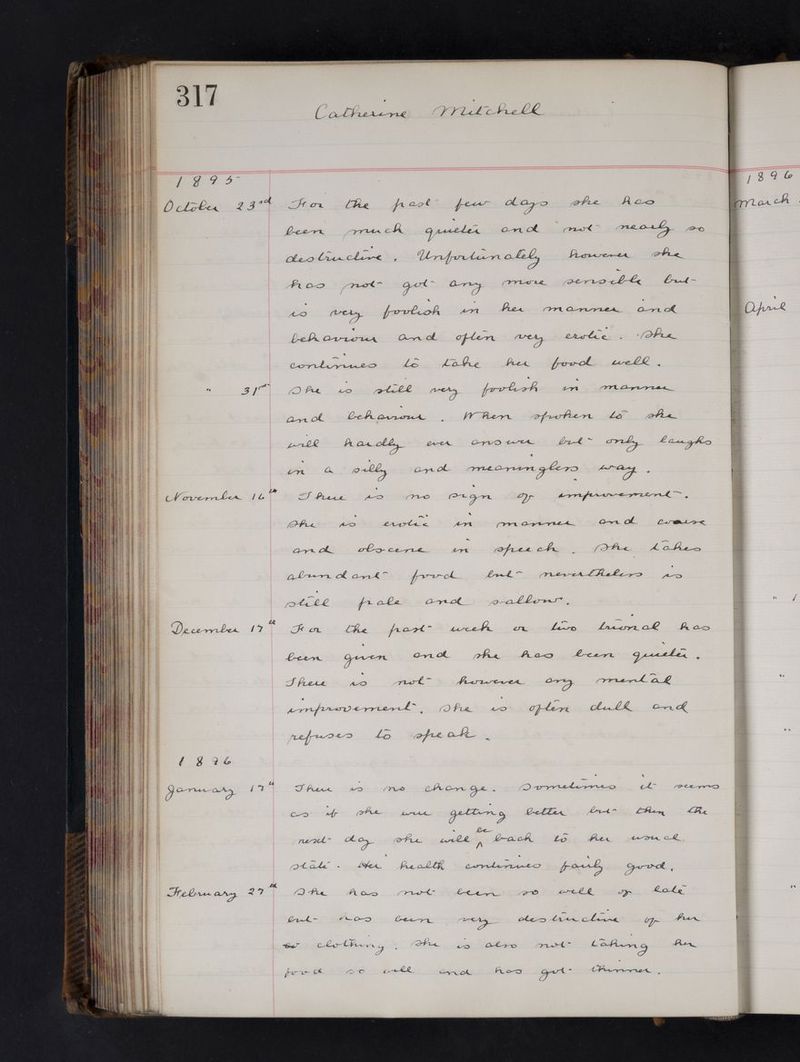 317
Catherine Mitchell
1895
October 23rd For the past few days she has
been much quieter and not nearly so
destructive. Unfortunately however she
has not got any more sensible but
is very foolish in her manner and
behaviour and often very erotic. She
continues to take her food well.
" 31st She is still very foolish in manner
and behaviour. When spoken to she
will hardly ever answer but only laughs
in a silly and meaningless way.
November 16th There is no sign of improvement.
She is erotic in manner and coarse
and obscene in speech. She takes
abundant food but nevertheless is
still pale and sallow.
December 17th For the past week or two trional has
been given and she has been quieter.
There is not however any mental
improvement. She is often dull and
refuses to speak.
1896
January 17th There is no change. Sometimes it seems
as if she were getting better but then the
next day she will be back to her usual
state. Her health continues fairly good.
February 27th She has not been so well of late
but has been very destructive of her
clothing. She is also not taking her
food so well and has got thinner.
1896
March
April
" 1
"
"
"